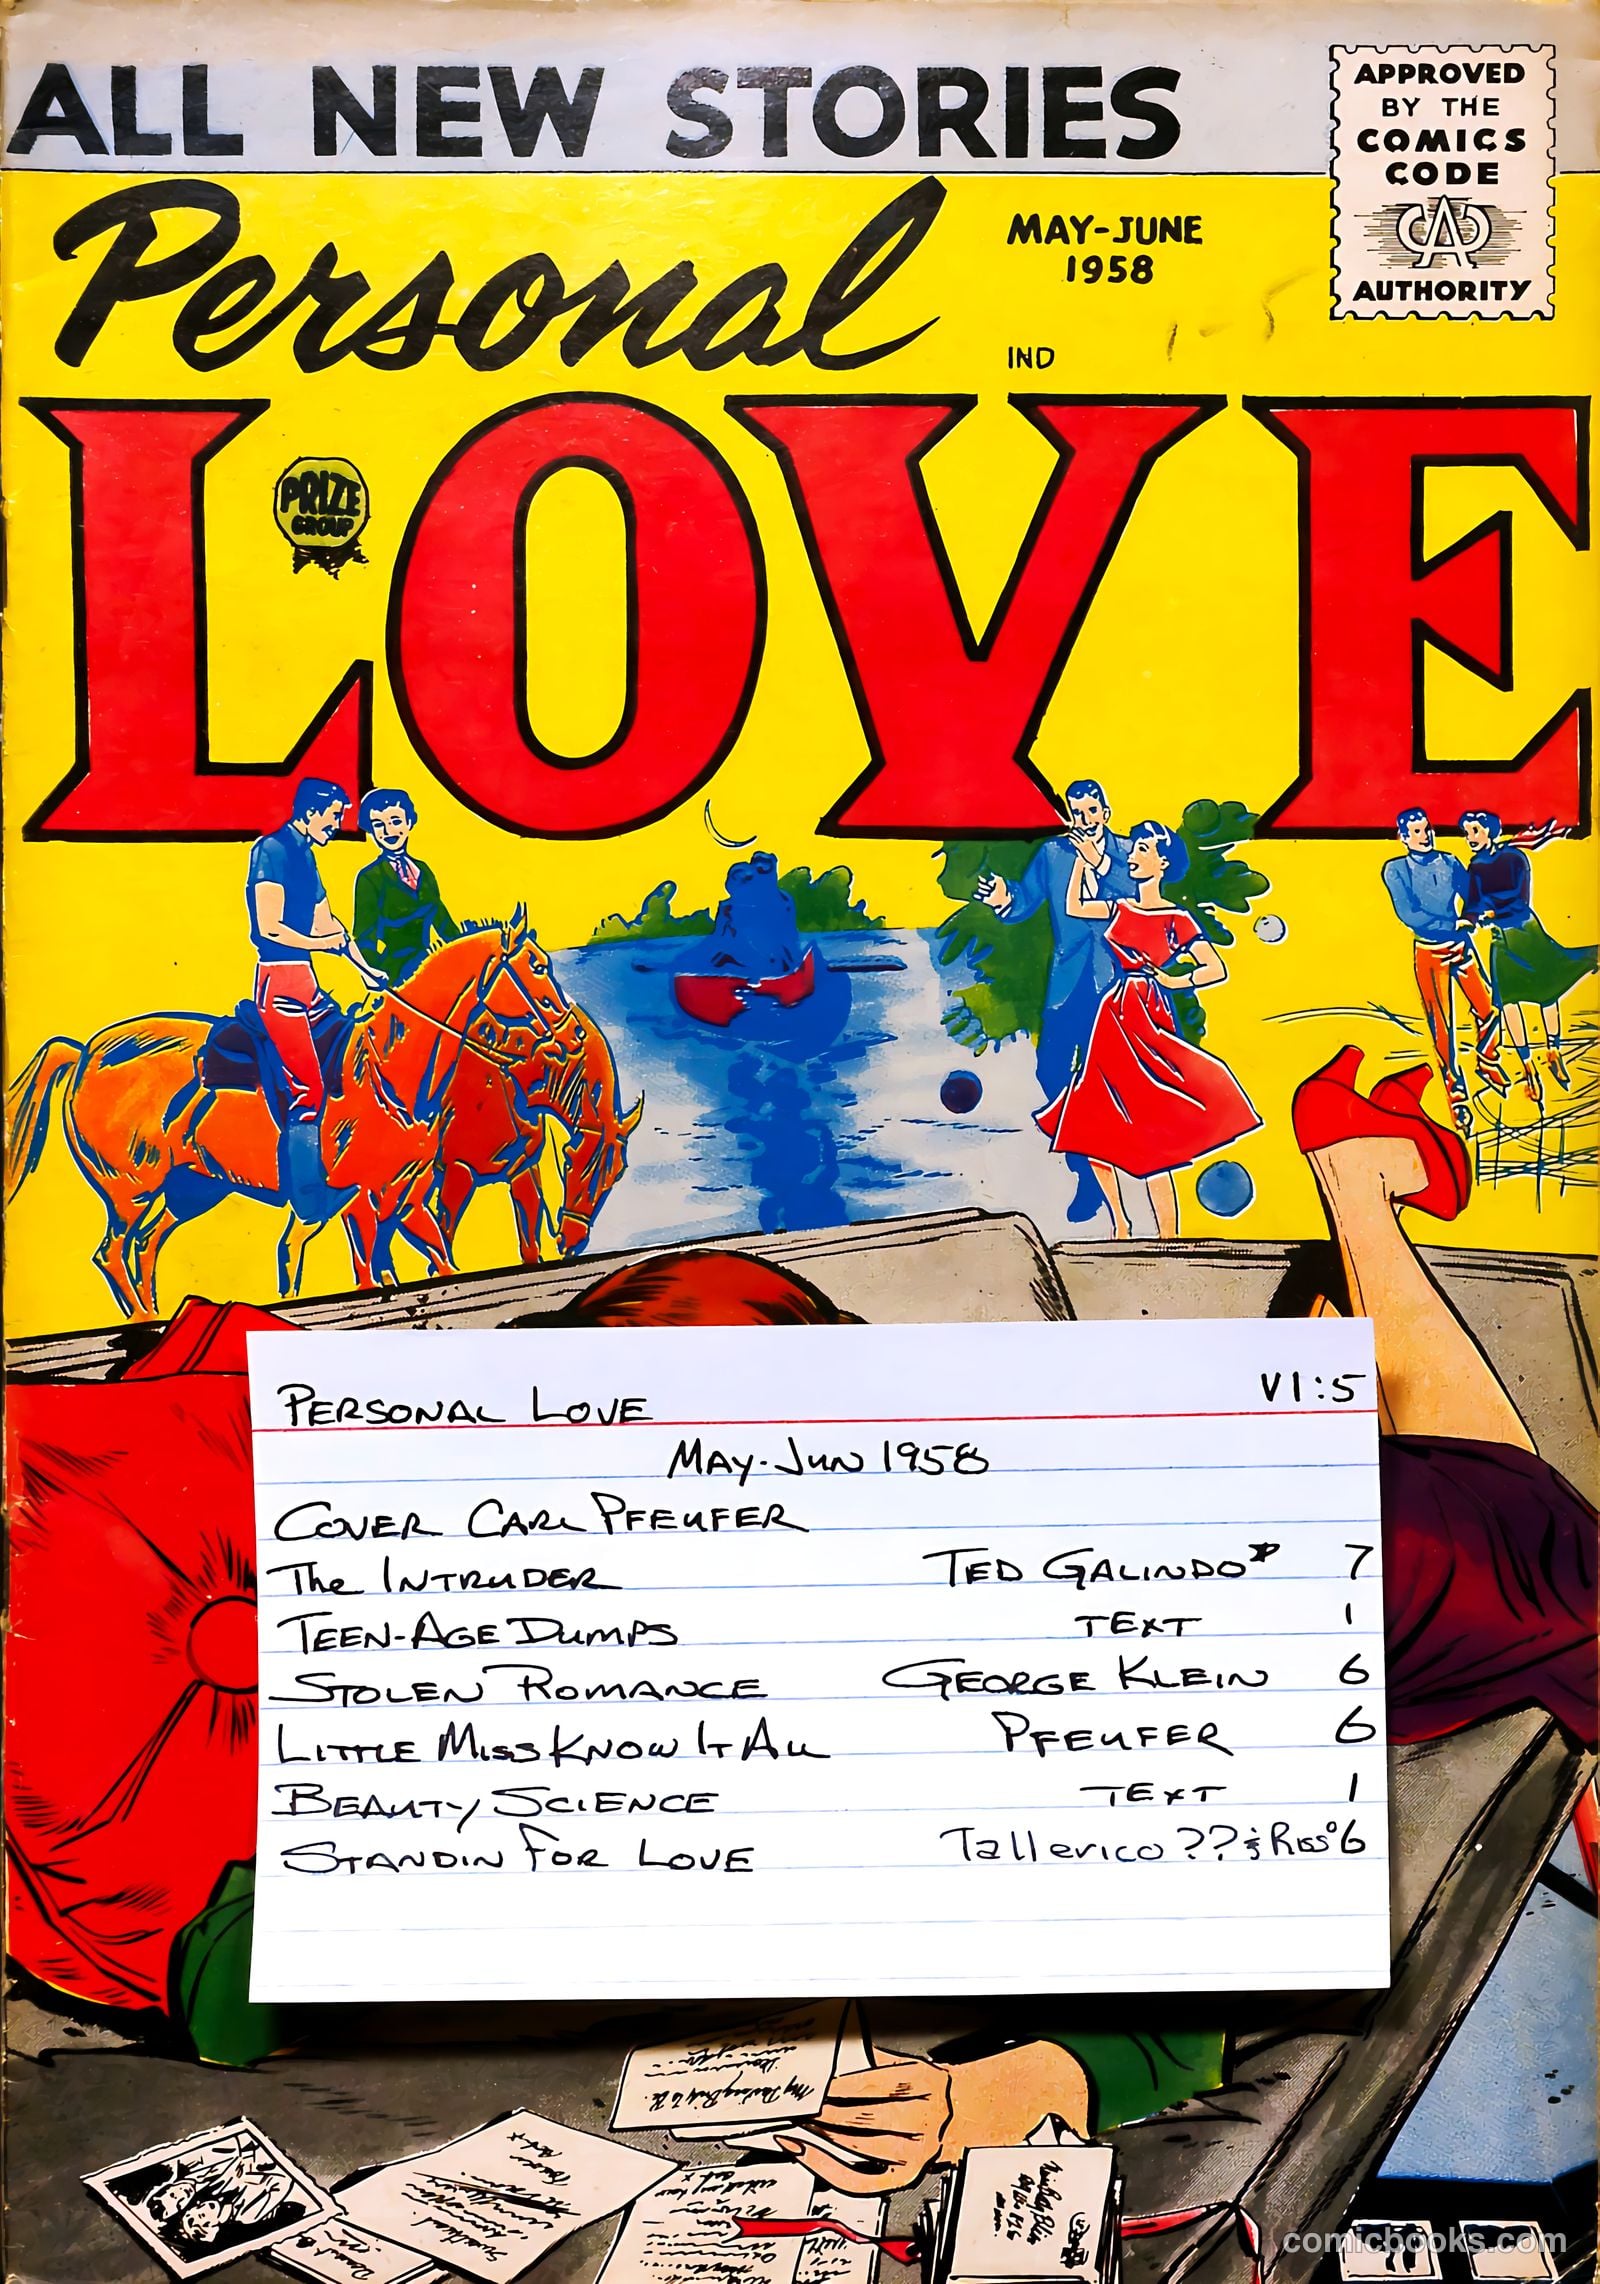 ALL NEW STORIES
APPROVED
BY THE
COMICS
CODE
CA
AUTHORITY
Personal
MAY-JUNE
1958
IND
LOVE
PRIZE
GROUP
PERSONAL LOVE V1:5
MAY-JUN 1958
COVER CARL PFEUFER
The INTRUDER TED GALINDO* 7
TEEN-AGE DUMPS TEXT 1
STOLEN ROMANCE GEORGE KLEIN 6
LITTLE MISS KNOW IT ALL PFEUFER 6
BEAUTY SCIENCE TEXT 1
STANDIN FOR LOVE Tallerico ?? & Riss° 6
My Darling
comicbooks.com